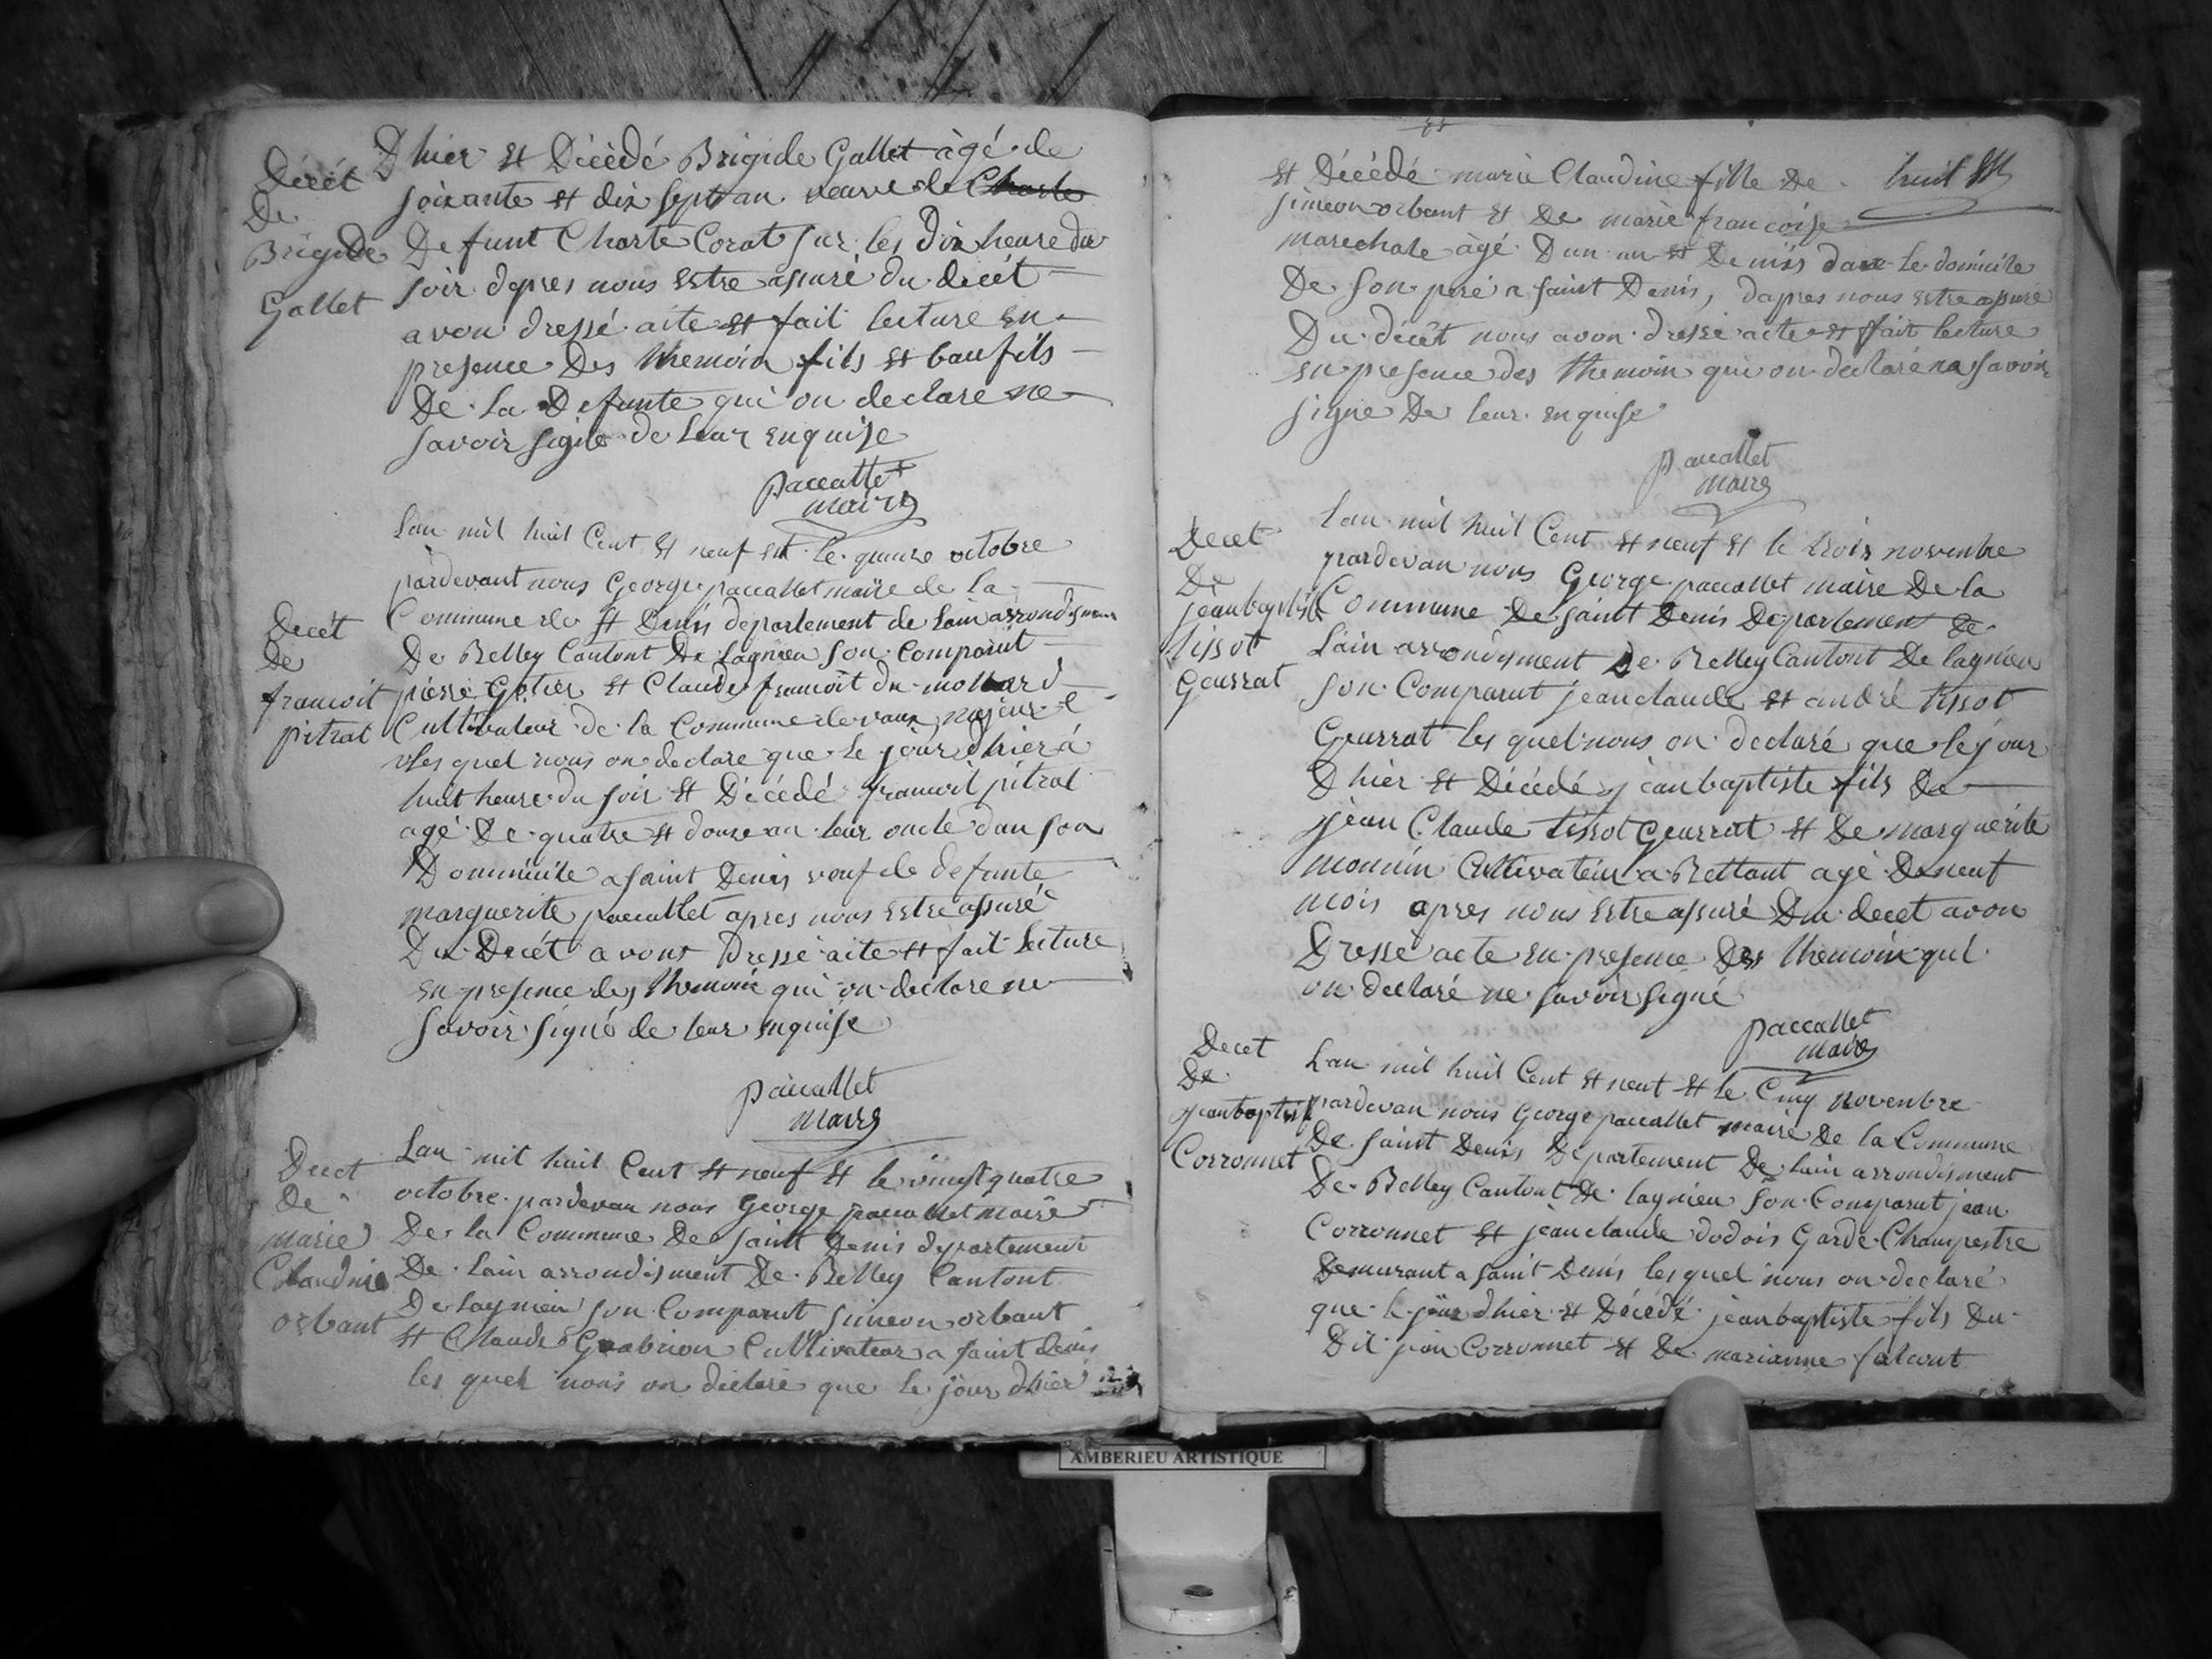 Décét
De
Brigide
Gallet
Dhier et Décédé Brigide Gallet àgé de
soixante et dix sept an veuve de Charle
Defunt Charle Corat sur les dix heure du
soir dapres nous estre assuré du décét
avon dressé aite et fait lecture en
presence Des themoin fils et baufils
De la Defunte qui on declare ne
savoir signe de leur enquise
paccallet
maire
Decét
De
francoit
pitrat
Lan mil huit Cent et neuf et le quinze octobre
pardevant nous George paccallet maire de la
Commune de St Denis departement de Lain arrondisment
De Belley Cantont De Lagnieu son Comparut
pierre Gotier et Claude francoit du mollard
Cultivateur de la Commune de vaux majeur
lesquel nous on declare que le jour dhier à
huit heure du soir et Décédé francoit pitrat
agé De quatre et douze an leur oncle dan son
Dommicile a saint Denis veuf de defunte
marguerite paccallet apres nous estre assuré
Du Decét avont dressé aite et fait lecture
en presence des themoin qui on declare ne
savoir signé de leur enquise
paccallet
maire
Decet
De
marie
Claudine
orbant
Lan mil huit Cent et neuf et le vingt quatre
octobre pardevan nous George paccallet maire
De la Commune De saint Denis departement
De Lain arrondisment De Belley Cantont
De Lagnieu son Comparut simeon orbant
et Claude Grabrion Cultivateur a saint Denis
les quel nous on déclaré que le jour dhier
et Décédé marie Claudine fille De huit
simeon orbant et De marie francoise
marechale àgé Dun an et Demis dans le domicile
De son peré a saint Denis, dapres nous estre assuré
Du décét nous avon dressé acte et fait lecture
en presence des themoin qui on declaré ne savoir
signe De leur enquise
paccallet
maire
Decet
De
jeanbaptiste
tissot
Geurrat
Lan mil huit Cent et neuf et le trois novenbre
pardevan nous George paccallet maire De la
Commune De saint Denis Departement De
Lain arrondisment De Belley Cantont De lagnieu
son Comparut jean claude et andré tissot
Geurrat les quel nous on declaré que le jour
Dhier et Décédé jean baptiste fils De
jean Claude tissot Geurrat et De marguerite
monnin Cultivateur a Bettant agé De neuf
mois apres nous estre assuré Du decet avon
Dressé acte en presence Des themoin qui
on declaré ne savoir signé
paccallet
maire
Decet
De
jeanbaptiste
Corronnet
Lan mil huit Cent et neuf et le Cinq novenbre
pardevan nous George paccallet maire De la Commune
De saint Denis Département De Lain arrondisment
De Belley Cantont De lagnieu son Comparut jean
Corronnet et jean claude dodois Garde Champestre
Demurant a saint Denis les quel nous on declaré
que le jour dhier et Décédé jean baptiste fils Du
Dit jean Corronnet et De marianne falcont
AMBERIEU ARTISTIQUE